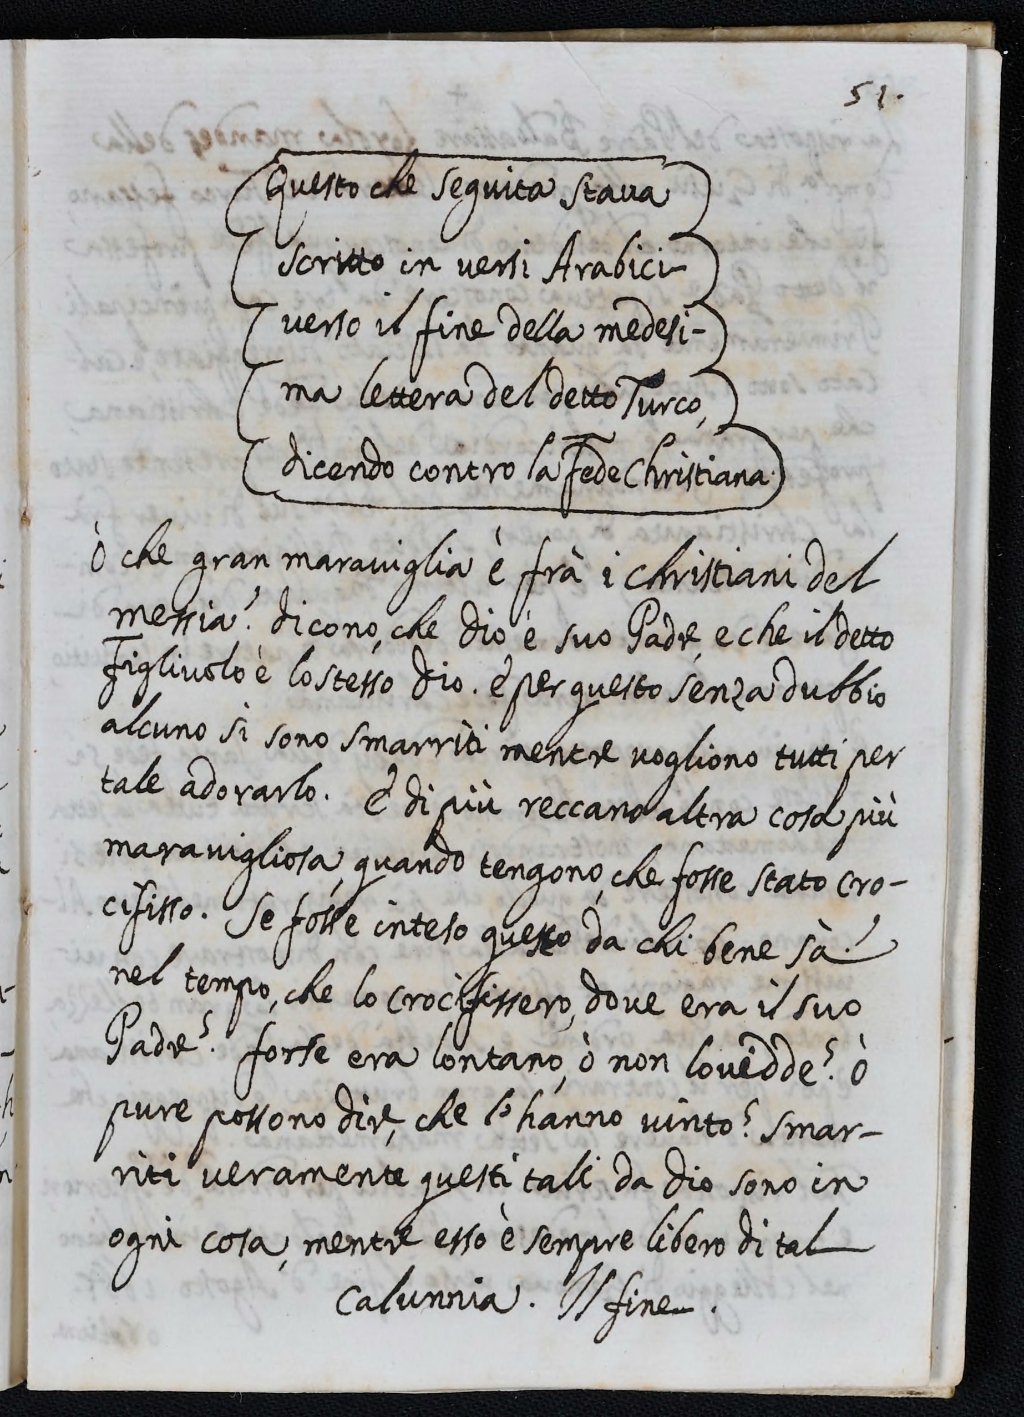 51.
Questo che seguita staua
scritto in versi Arabici
verso il fine della medesi-
ma lettera del detto Turco,
dicendo contro la Fede Christiana.
Ò che gran marauiglia è frà i christiani del
messia! dicono, che dio è suo Padre, e che il detto
Figliuolo è lo stesso dio. e per questo senza dubbio
alcuno si sono smarriti mentre uogliono tutti per
tale adorarlo. E di più reccano altra cosa più
marauigliosa, quando tengono, che fosse stato cro-
cifisso. Se fosse inteso questo da chi bene sà!
nel tempo, che lo crocifissero, doue era il suo
Padre? forse era lontano, ò non lo uedde? ò
pure possono dire, che l'hanno uinto? smar-
riti ueramente questi tali da dio sono in
ogni cosa, mentre esso è sempre libero di tal
Calunnia. Il fine.